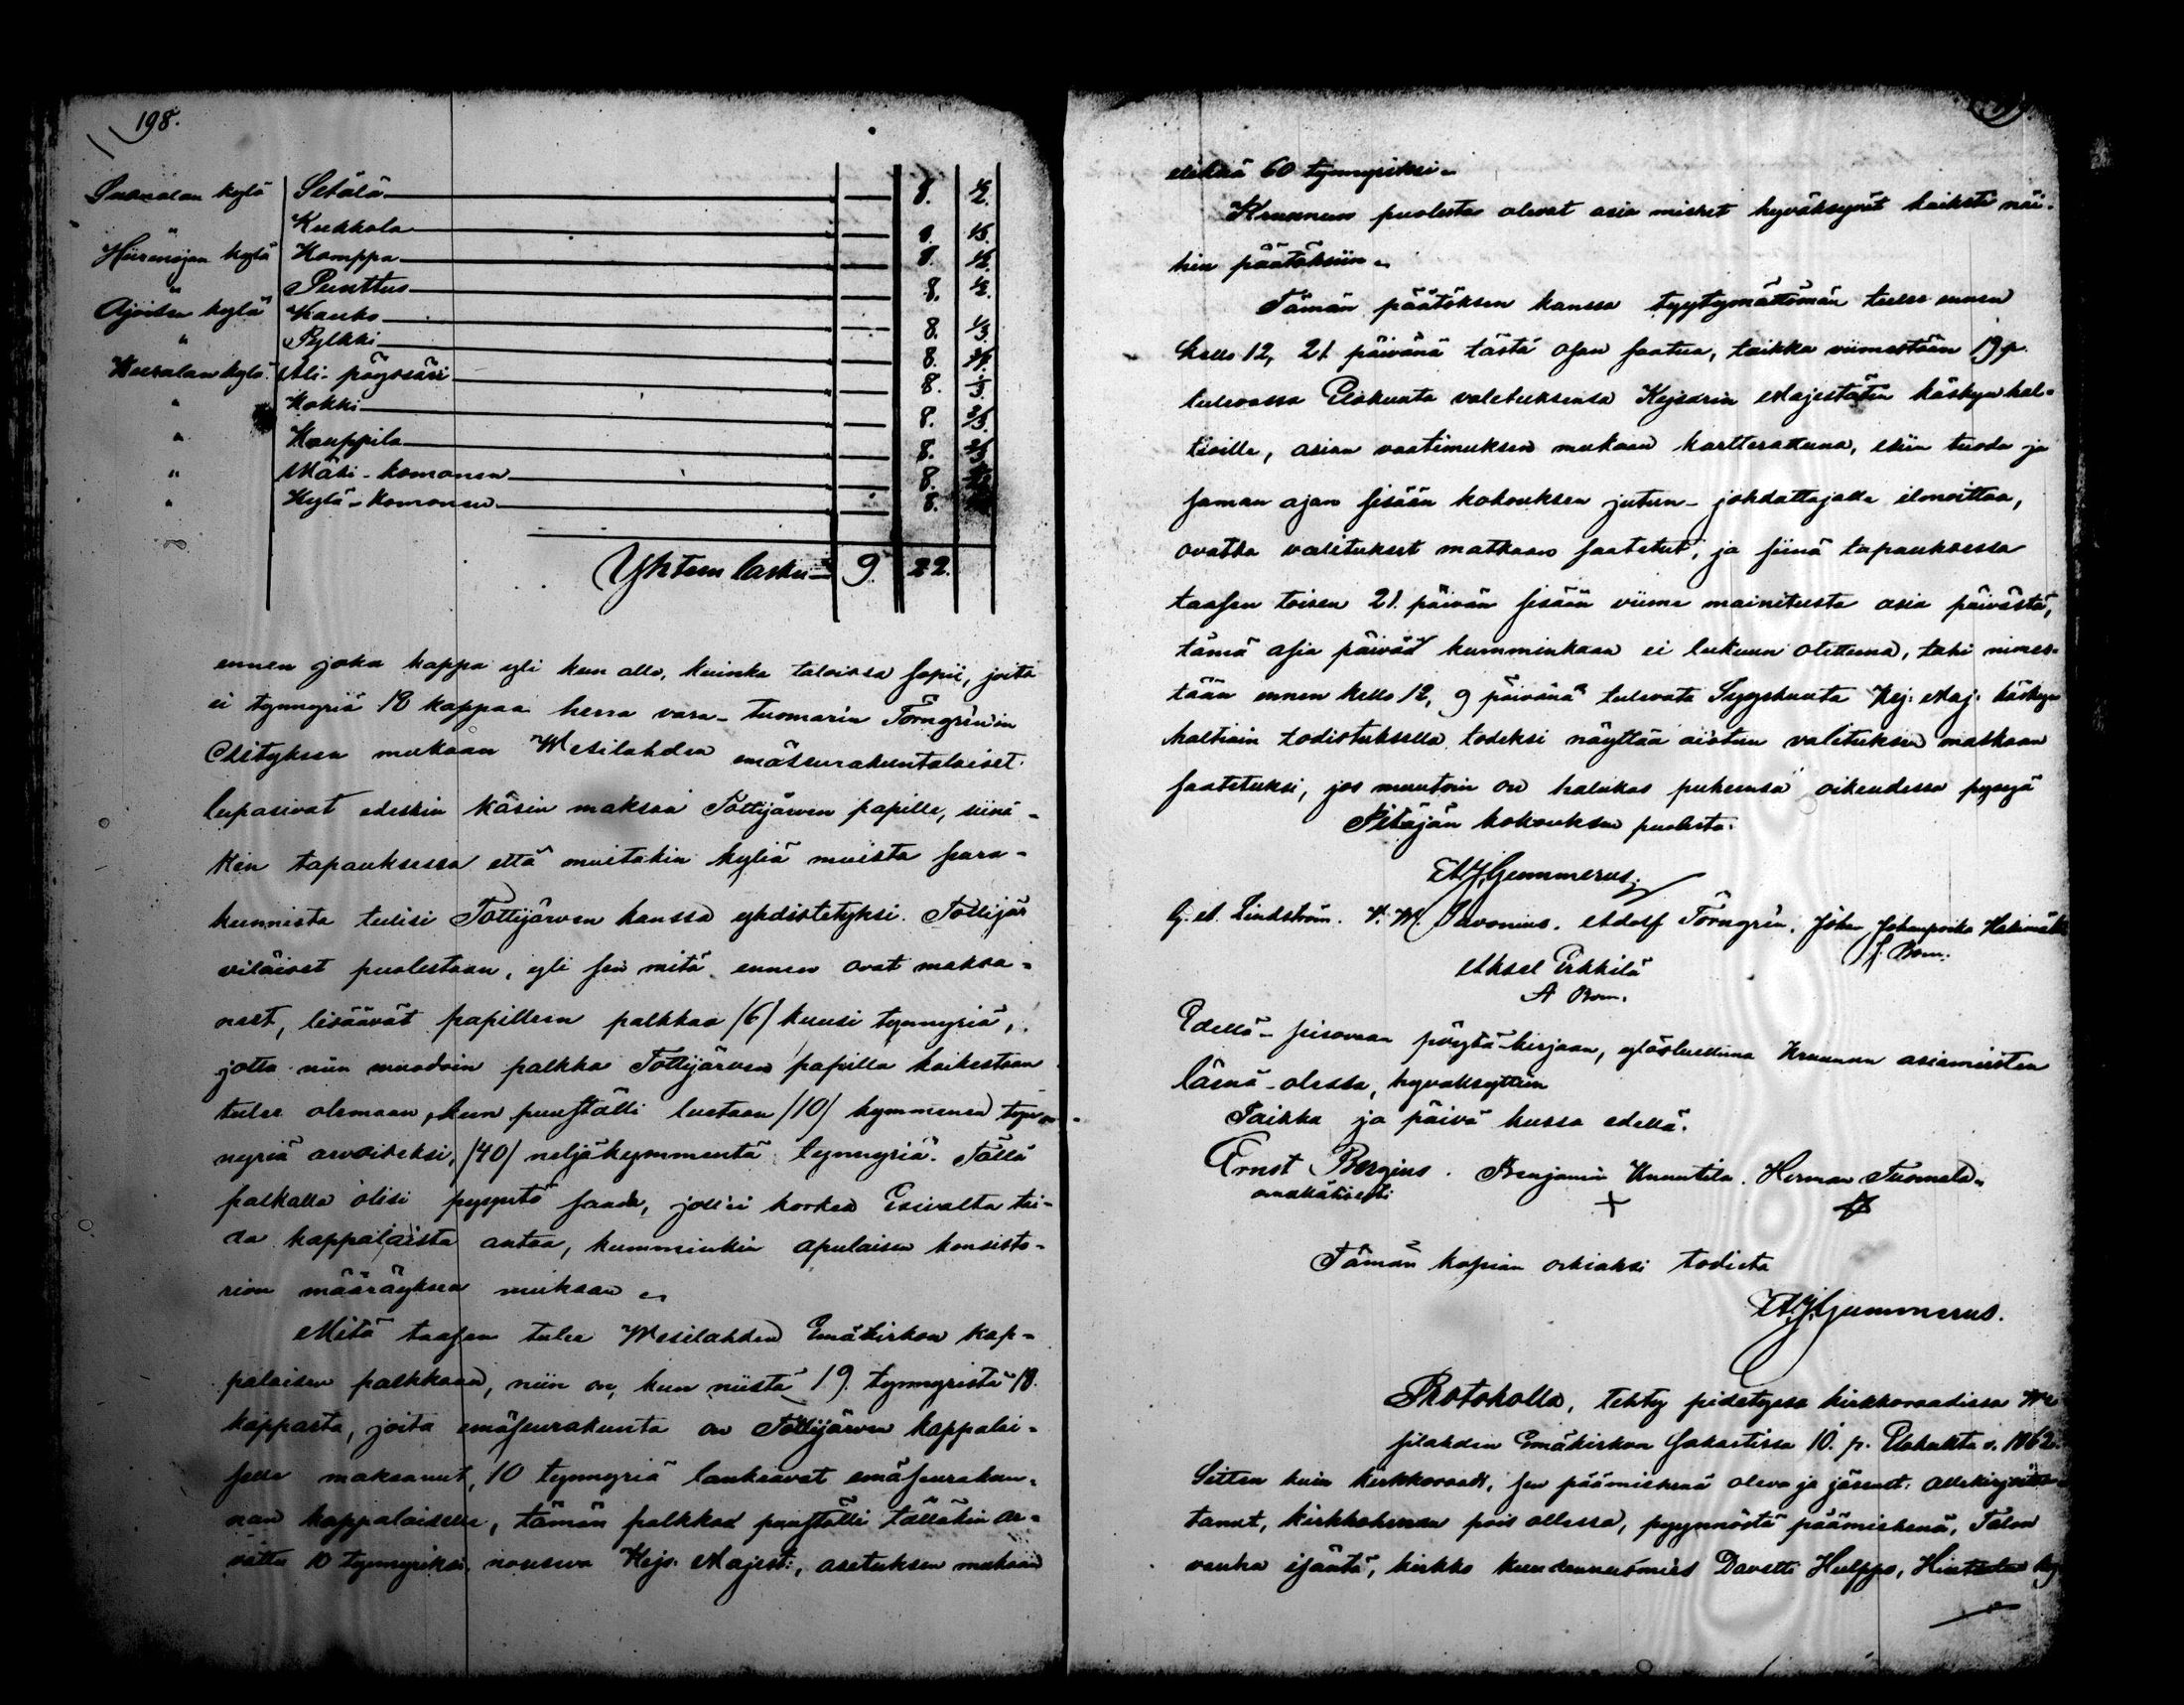 198.
Suomelan kylä Setälä — 8. 1/2.
" Kukkola — 8. 1/3.
Hiirenojan kylä Komppa — 8. 1/2.
" Punttus — 8. 1/2.
Ajoilan kylä Kauko — 8. 1/3.
" Pylkki — 8. 2/3.
Kuralan kylä Ali-pöyssäri — 8. 1/3.
" Kokki — 8. 2/3.
" Kauppila — 8. 2/3.
" Mäki-komonen — 8.
" Kylä-komonen — 8.
Yhteen lasku — 9. 22.
ennen joka kappa yli kun alle, kuinka taloissa sopii, joita
ei tynnyriä 18 kappaa herra vara-tuomarin Törngrénin
Esityksen mukaan Wesilahden emäseurakuntalaiset
lupasivat edeskin käsin maksaa Tottijärven papille, siinä-
kin tapauksessa että muitakin kyliä muista seura-
kunnista tulisi Tottijärven kanssa yhdistetyksi. Tottijär
viläiset puolestaan, yli sen mitä ennen ovat maksa-
neet, lisäävät papillern palkkaa /6/ kuusi tynnyriä,
jotta niin muodoin palkka Tottijärven papilla kaikestaan
tulee olemaan, kun puuställi luetaan /10/ kymmenen tyn-
nyriä arvoiseksi, /40/ neljäkymmentä tynnyriä. Tällä
palkalla olisi pyyntö saada, jollei korkea Esivalta tai-
da kappalaista antaa, kumminkin apulaisen konsisto-
rion määräyksen mukaan.
Mitä taasen tulee Wesilahden Emäkirkon kap-
palaisen palkkaan, niin on, kun niistä 19. tynnyristä 18.
kappasta, joita emäseurakunta on Tottijärven kappalai-
selle maksanut, 10 tynnyriä lankeavat emäseurakun-
nan kappalaiselle, tämän palkkad puuställi tälläkin ar-
vattu 10 tynnyriksi, nouseva Kejs. Majest:, asetuksen mukaan
elikkä 60 tynnyriksi.
Kruunun puolesta olevat asia miehet hyväksyvät kaikki näi-
hin päätöksiin.
Tämän päätöksen kanssa tyytymättömän tulee ennen
kello 12, 21. päivänä tästä osan saatua, taikka viimestään 19 p.
tulevassa Elokuuta valituksensa Kejsarin Majestätin käskyn hal-
tioille, asian vaatimuksen mukaan kartterattuna, esiin tuoda ja
saman ajan sisään kokouksen jutun-johdattajalle ilmoittaa,
ovatko valitukset matkaan saatetut, ja siinä tapauksessa
taasen toisen 21. päivän sisään viime mainitusta asia päivästä,
tämä asia päivää kumminkaan ei lukuun otettuna, tahi viimes-
tään ennen kello 12, 9 päivänä tulevata Syyskuuta Kej. Maj. käskyn
haltiain todistuksella todeksi näyttää aiotun valituksen matkaan
saatetuksi, jos muutoin on halukas puhensa oikeudessa pysyä
Pitäjän kokouksen puolesta.
A. J. Gummerus.
G. A. Lindström. K. W. Savonius. Adolf Törngrén. Johan Johanpoika Hakimäki
J. Bom.
Aksel Erkkilä
A Bom.
Edellä-seisovan pöytä-kirjaan, ylösluettuna Kruunun asiamiesten
läsnä-olessa, hyväksyttiin
Paikka ja päivä kussa edellä.
Ernst Bergius. Benjamin Unnutila. Herman Tuomala.
omakätisesti
Tämän kopian oikiaksi todista
A. J. Gummerus.
Protokolla, tehty pidetyssä kirkkoraadissa We
silahden Emäkirkon Sakastissa 10. p. Elokuuta v. 1862.
Sitten kuin kirkkoraadi, sen päämiehenä oleva ja jäsenet: allekirjoitta-
tanut, kirkkoherran pois ollessa, pyynnöstä päämiehenä, Talon
vanha isäntä, kirkko kuudennusmies Davetti Hulppo,